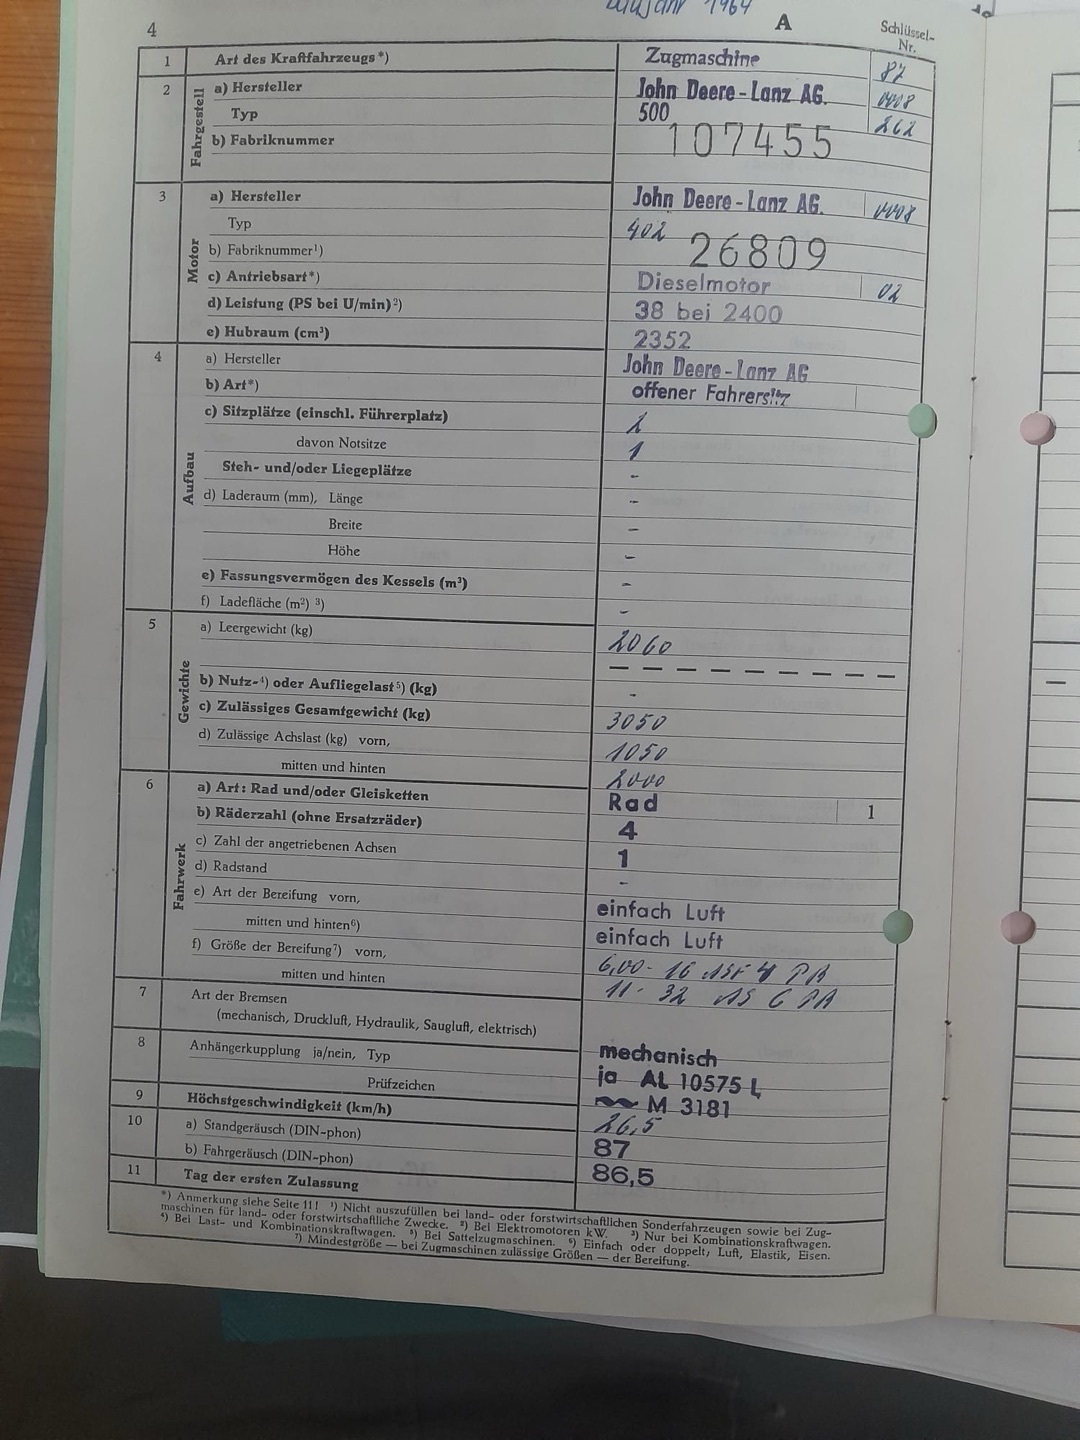 Baujahr 1964
4
A
Schlüssel-
Nr.
1 Art des Kraftfahrzeugs*) Zugmaschine 87
2 Fahrgestell a) Hersteller John Deere-Lanz AG. 0008
Typ 500 262
b) Fabriknummer 107455
3 Motor a) Hersteller John Deere-Lanz AG. 0008
Typ 402
b) Fabriknummer¹) 26809
c) Antriebsart*) Dieselmotor 02
d) Leistung (PS bei U/min)²) 38 bei 2400
e) Hubraum (cm³) 2352
4 Aufbau a) Hersteller John Deere-Lanz AG
b) Art*) offener Fahrersitz
c) Sitzplätze (einschl. Führerplatz) 2
davon Notsitze 1
Steh- und/oder Liegeplätze -
d) Laderaum (mm), Länge -
Breite -
Höhe -
e) Fassungsvermögen des Kessels (m³) -
f) Ladefläche (m²) ³) -
5 Gewichte a) Leergewicht (kg) 2060
— — — — — — — — — —
b) Nutz-⁴) oder Aufliegelast⁵) (kg) -
c) Zulässiges Gesamtgewicht (kg) 3050
d) Zulässige Achslast (kg) vorn, 1050
mitten und hinten 2000
6 Fahrwerk a) Art: Rad und/oder Gleisketten Rad 1
b) Räderzahl (ohne Ersatzräder) 4
c) Zahl der angetriebenen Achsen 1
d) Radstand -
e) Art der Bereifung vorn, einfach Luft
mitten und hinten⁶) einfach Luft
f) Größe der Bereifung⁷) vorn, 6,00- 16 ASF 4 PR
mitten und hinten 11- 32 AS 6 PR
7 Art der Bremsen
(mechanisch, Druckluft, Hydraulik, Saugluft, elektrisch) mechanisch
8 Anhängerkupplung ja/nein, Typ ja AL 10575 L
Prüfzeichen M 3181
9 Höchstgeschwindigkeit (km/h) 26,5
10 a) Standgeräusch (DIN-phon) 87
b) Fahrgeräusch (DIN-phon) 86,5
11 Tag der ersten Zulassung
*) Anmerkung siehe Seite 11! ¹) Nicht auszufüllen bei land- oder forstwirtschaftlichen Sonderfahrzeugen sowie bei Zug-
maschinen für land- oder forstwirtschaftliche Zwecke. ²) Bei Elektromotoren kW. ³) Nur bei Kombinationskraftwagen.
⁴) Bei Last- und Kombinationskraftwagen. ⁵) Bei Sattelzugmaschinen. ⁶) Einfach oder doppelt; Luft, Elastik, Eisen.
⁷) Mindestgröße — bei Zugmaschinen zulässige Größen — der Bereifung.